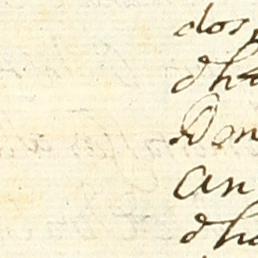 dos
dha
Don
an
dha